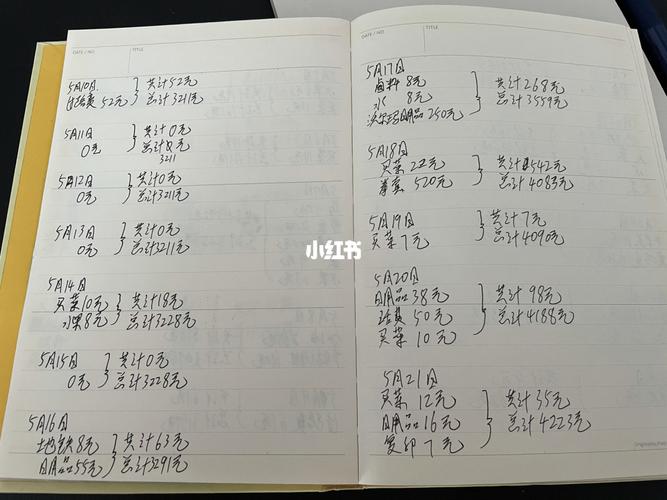 DATE / NO.
TITLE
5月10日
52元
共计52元
总计3211元
5月11日
0元
共计0元
总计
3211
5月12日
0元
共计0元
总计3211元
5月13日
0元
共计0元
总计3211元
5月14日
买菜10元
水果8元
共计18元
总计3228元
5月15日
0元
共计0元
总计3228元
5月16日
地铁8元
日用品55元
共计63元
总计3291元
DATE / NO.
TITLE
5月17日
卤料 8元
水 8元
沃尔玛日用品250元
共计268元
总计3559元
5月18日
买菜22元
520元
共计542元
总计4083元
5月19日
买菜7元
共计7元
总计4090元
5月20日
日用品38元
话费50元
买菜10元
共计98元
总计4188元
5月21日
买菜12元
日用品16元
复印7元
共计35元
总计4223元
小红书